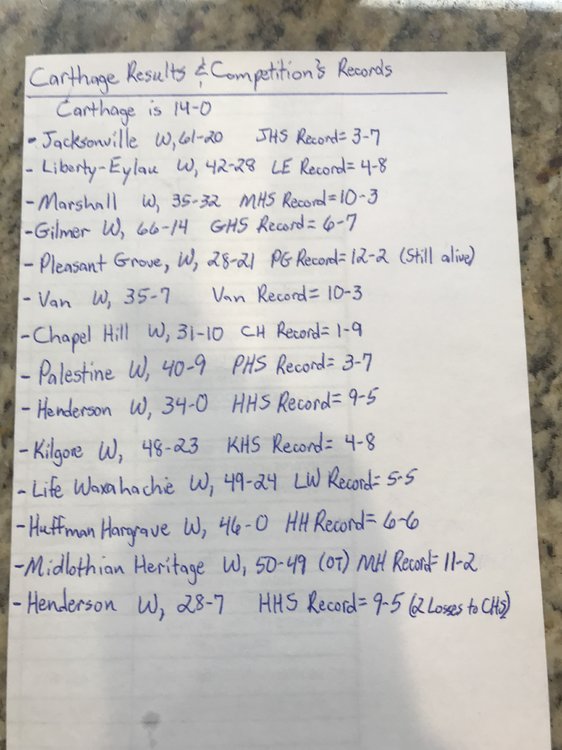 Carthage Results & Competition's Records
Carthage is 14-0
- Jacksonville W, 61-20 JHS Record= 3-7
- Liberty-Eylau W, 42-28 LE Record= 4-8
- Marshall W, 35-32 MHS Record=10-3
- Gilmer W, 66-14 GHS Record= 6-7
- Pleasant Grove, W, 28-21 PG Record= 12-2 (Still alive)
- Van W, 35-7 Van Record= 10-3
- Chapel Hill W, 31-10 CH Record= 1-9
- Palestine W, 40-9 PHS Record= 3-7
- Henderson W, 34-0 HHS Record= 9-5
- Kilgore W, 48-23 KHS Record= 4-8
- Life Waxahachie W, 49-24 LW Record= 5-5
- Huffman Hargrave W, 46-0 HH Record= 6-6
- Midlothian Heritage W, 50-49 (OT) MH Record= 11-2
- Henderson W, 28-7 HHS Record= 9-5 (2 Losses to CHS)